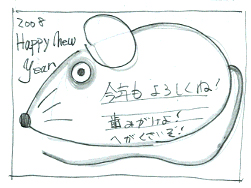 2008
Happy New
Year
今年もよろしくね!
歯みがけよ!
へがくさいぞ!